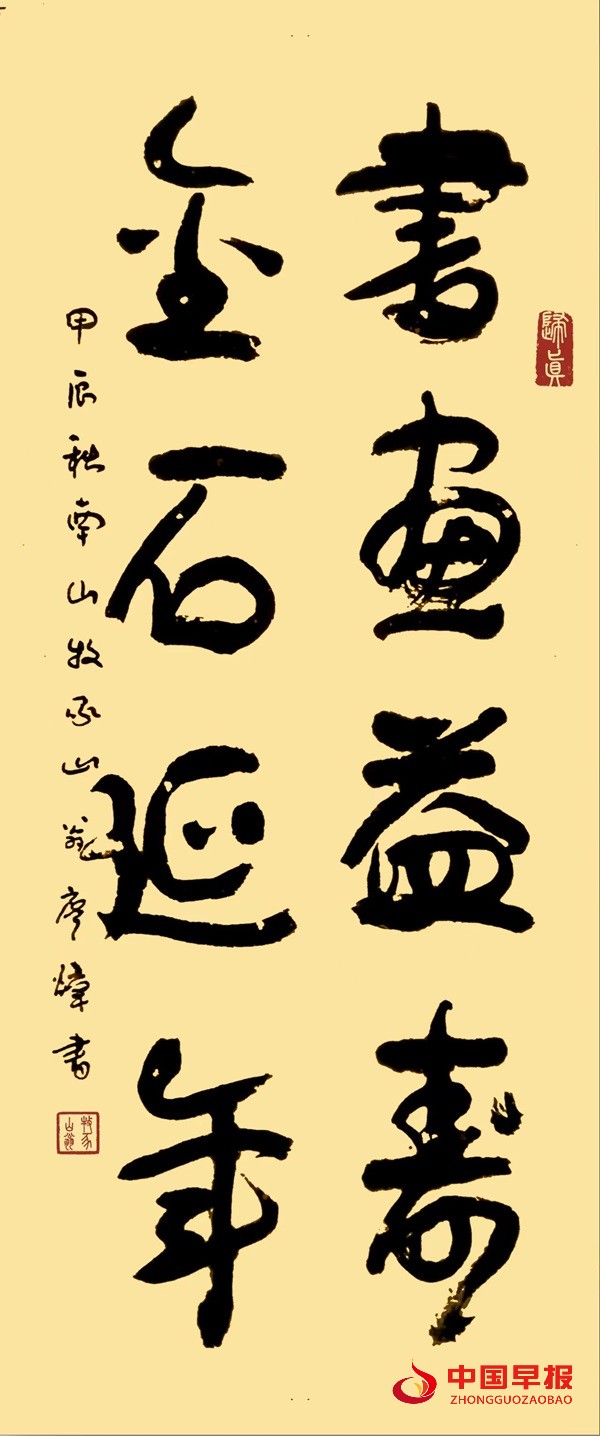 書畫益壽
金石延年
甲辰秋南山牧豕山翁廖煒書
歸真
牧豕山翁
中国早报
ZHONGGUOZAOBAO